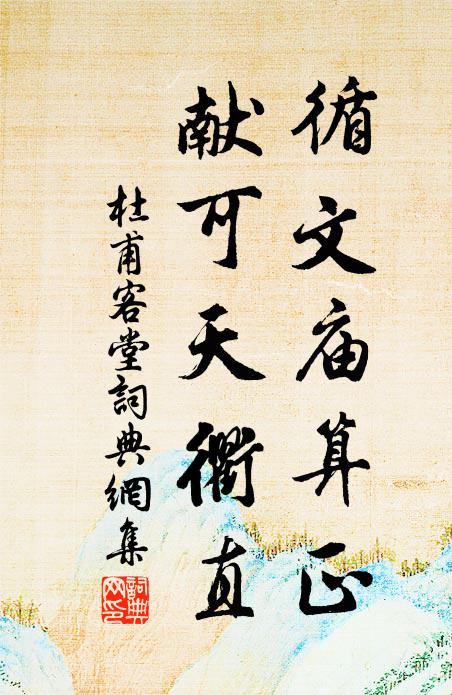 循文庙算正
献可天衢直
杜甫客堂詞典網集
詞典网印